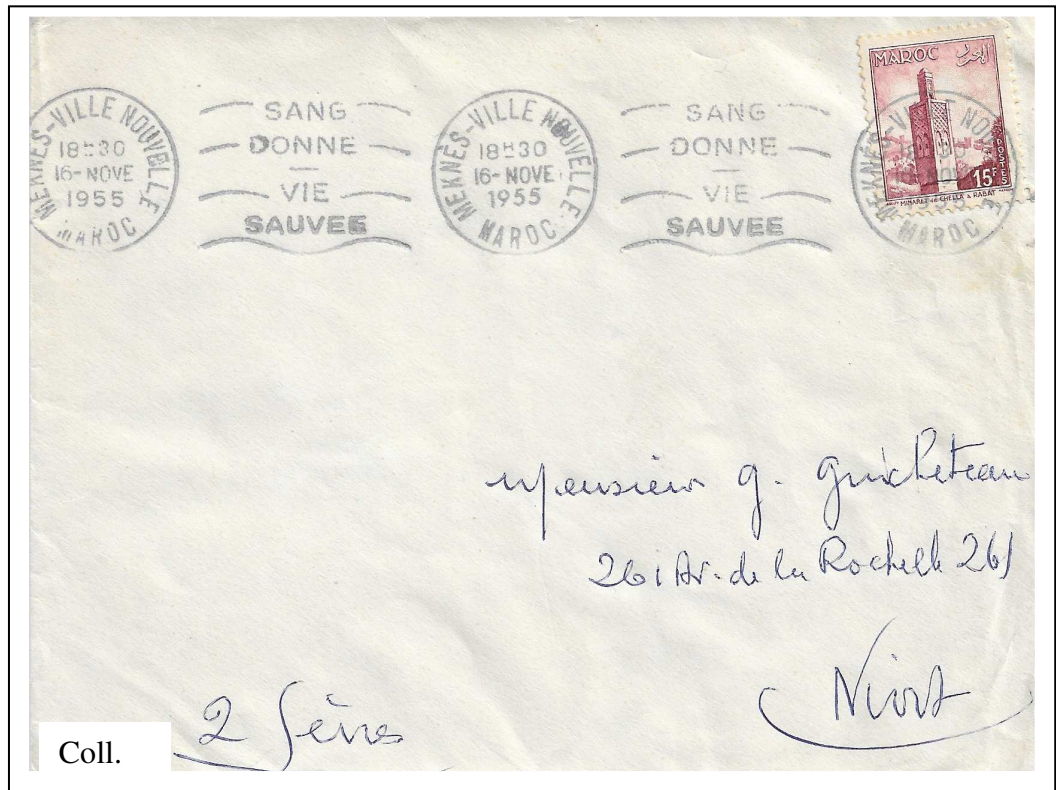 MEKNÈS-VILLE NOUVELLE
18H30
16-NOVE
1955
MAROC
SANG
DONNE
—
VIE
SAUVEE
MEKNÈS-VILLE NOUVELLE
18H30
16-NOVE
1955
MAROC
SANG
DONNE
—
VIE
SAUVEE
MAROC المغرب
POSTES
15F
MINARET DE CHELLA A RABAT
MAROC
Monsieur G. Guicheteau
261 Av. de la Rochelle 261
Niort
2 Sèvres
Coll.